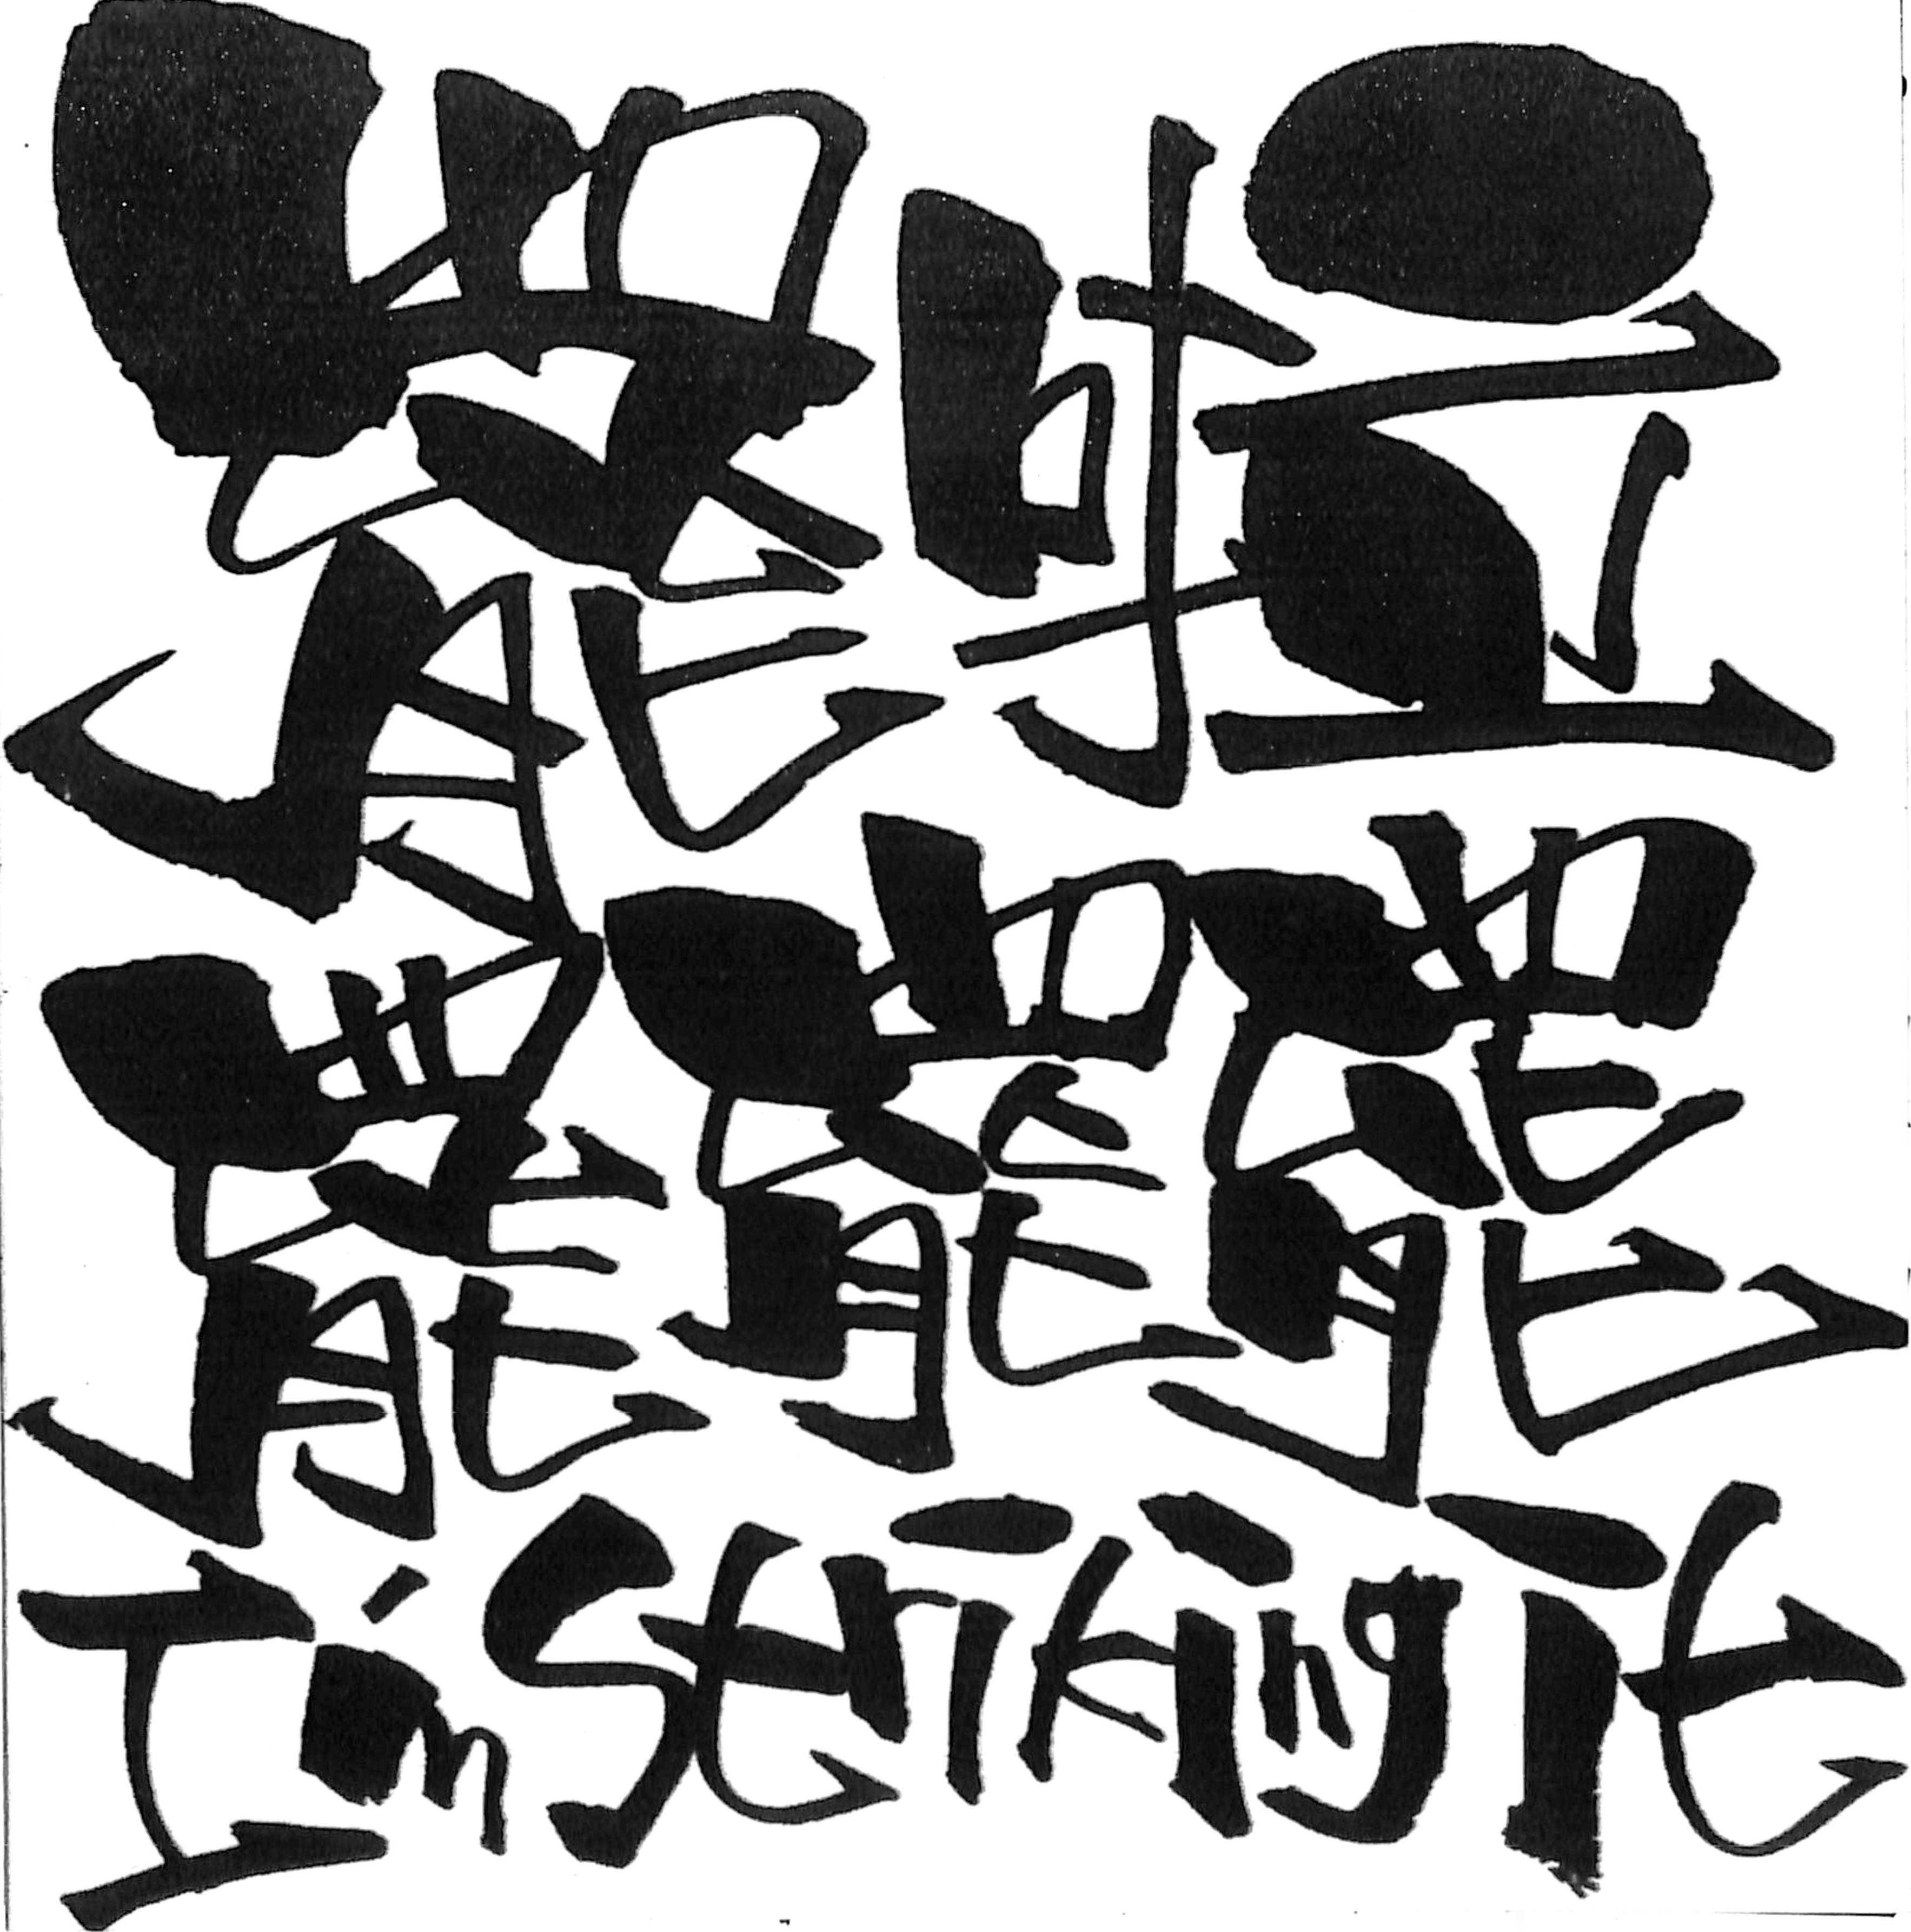 罷啦
罷罷罷
I'm striking it